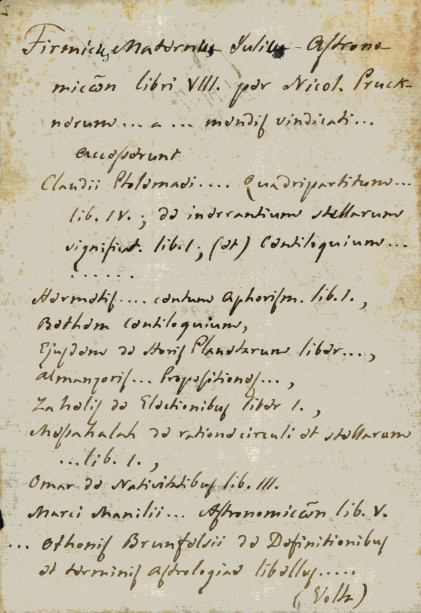 Firmicus Maternus Julius Astrono-
micῶn libri VIII. per Nicol. Pruck-
nerum... a... mendis vindicati...
accesserunt
Claudii Ptolemaei.... Quadripartitum...
lib. IV.; de inerrantium stellarum
significat. lib. I., (et) Centiloquium...
......
Hermetis.... centum Aphorism. lib. I.,
Bethem Centiloquium,
Ejusdem de Horis Planetarum liber...,
Almanzoris... Propositiones...,
Zahelis de Electionibus liber I.,
Messahalah de ratione circuli et stellarum
...lib. I.,
Omar de Nativitatibus lib. III.
Marci Manilii... Astronomicῶn lib. V.
... Othonis Brunfelsii de Definitionibus
et terminis Astrologiae libellus.....